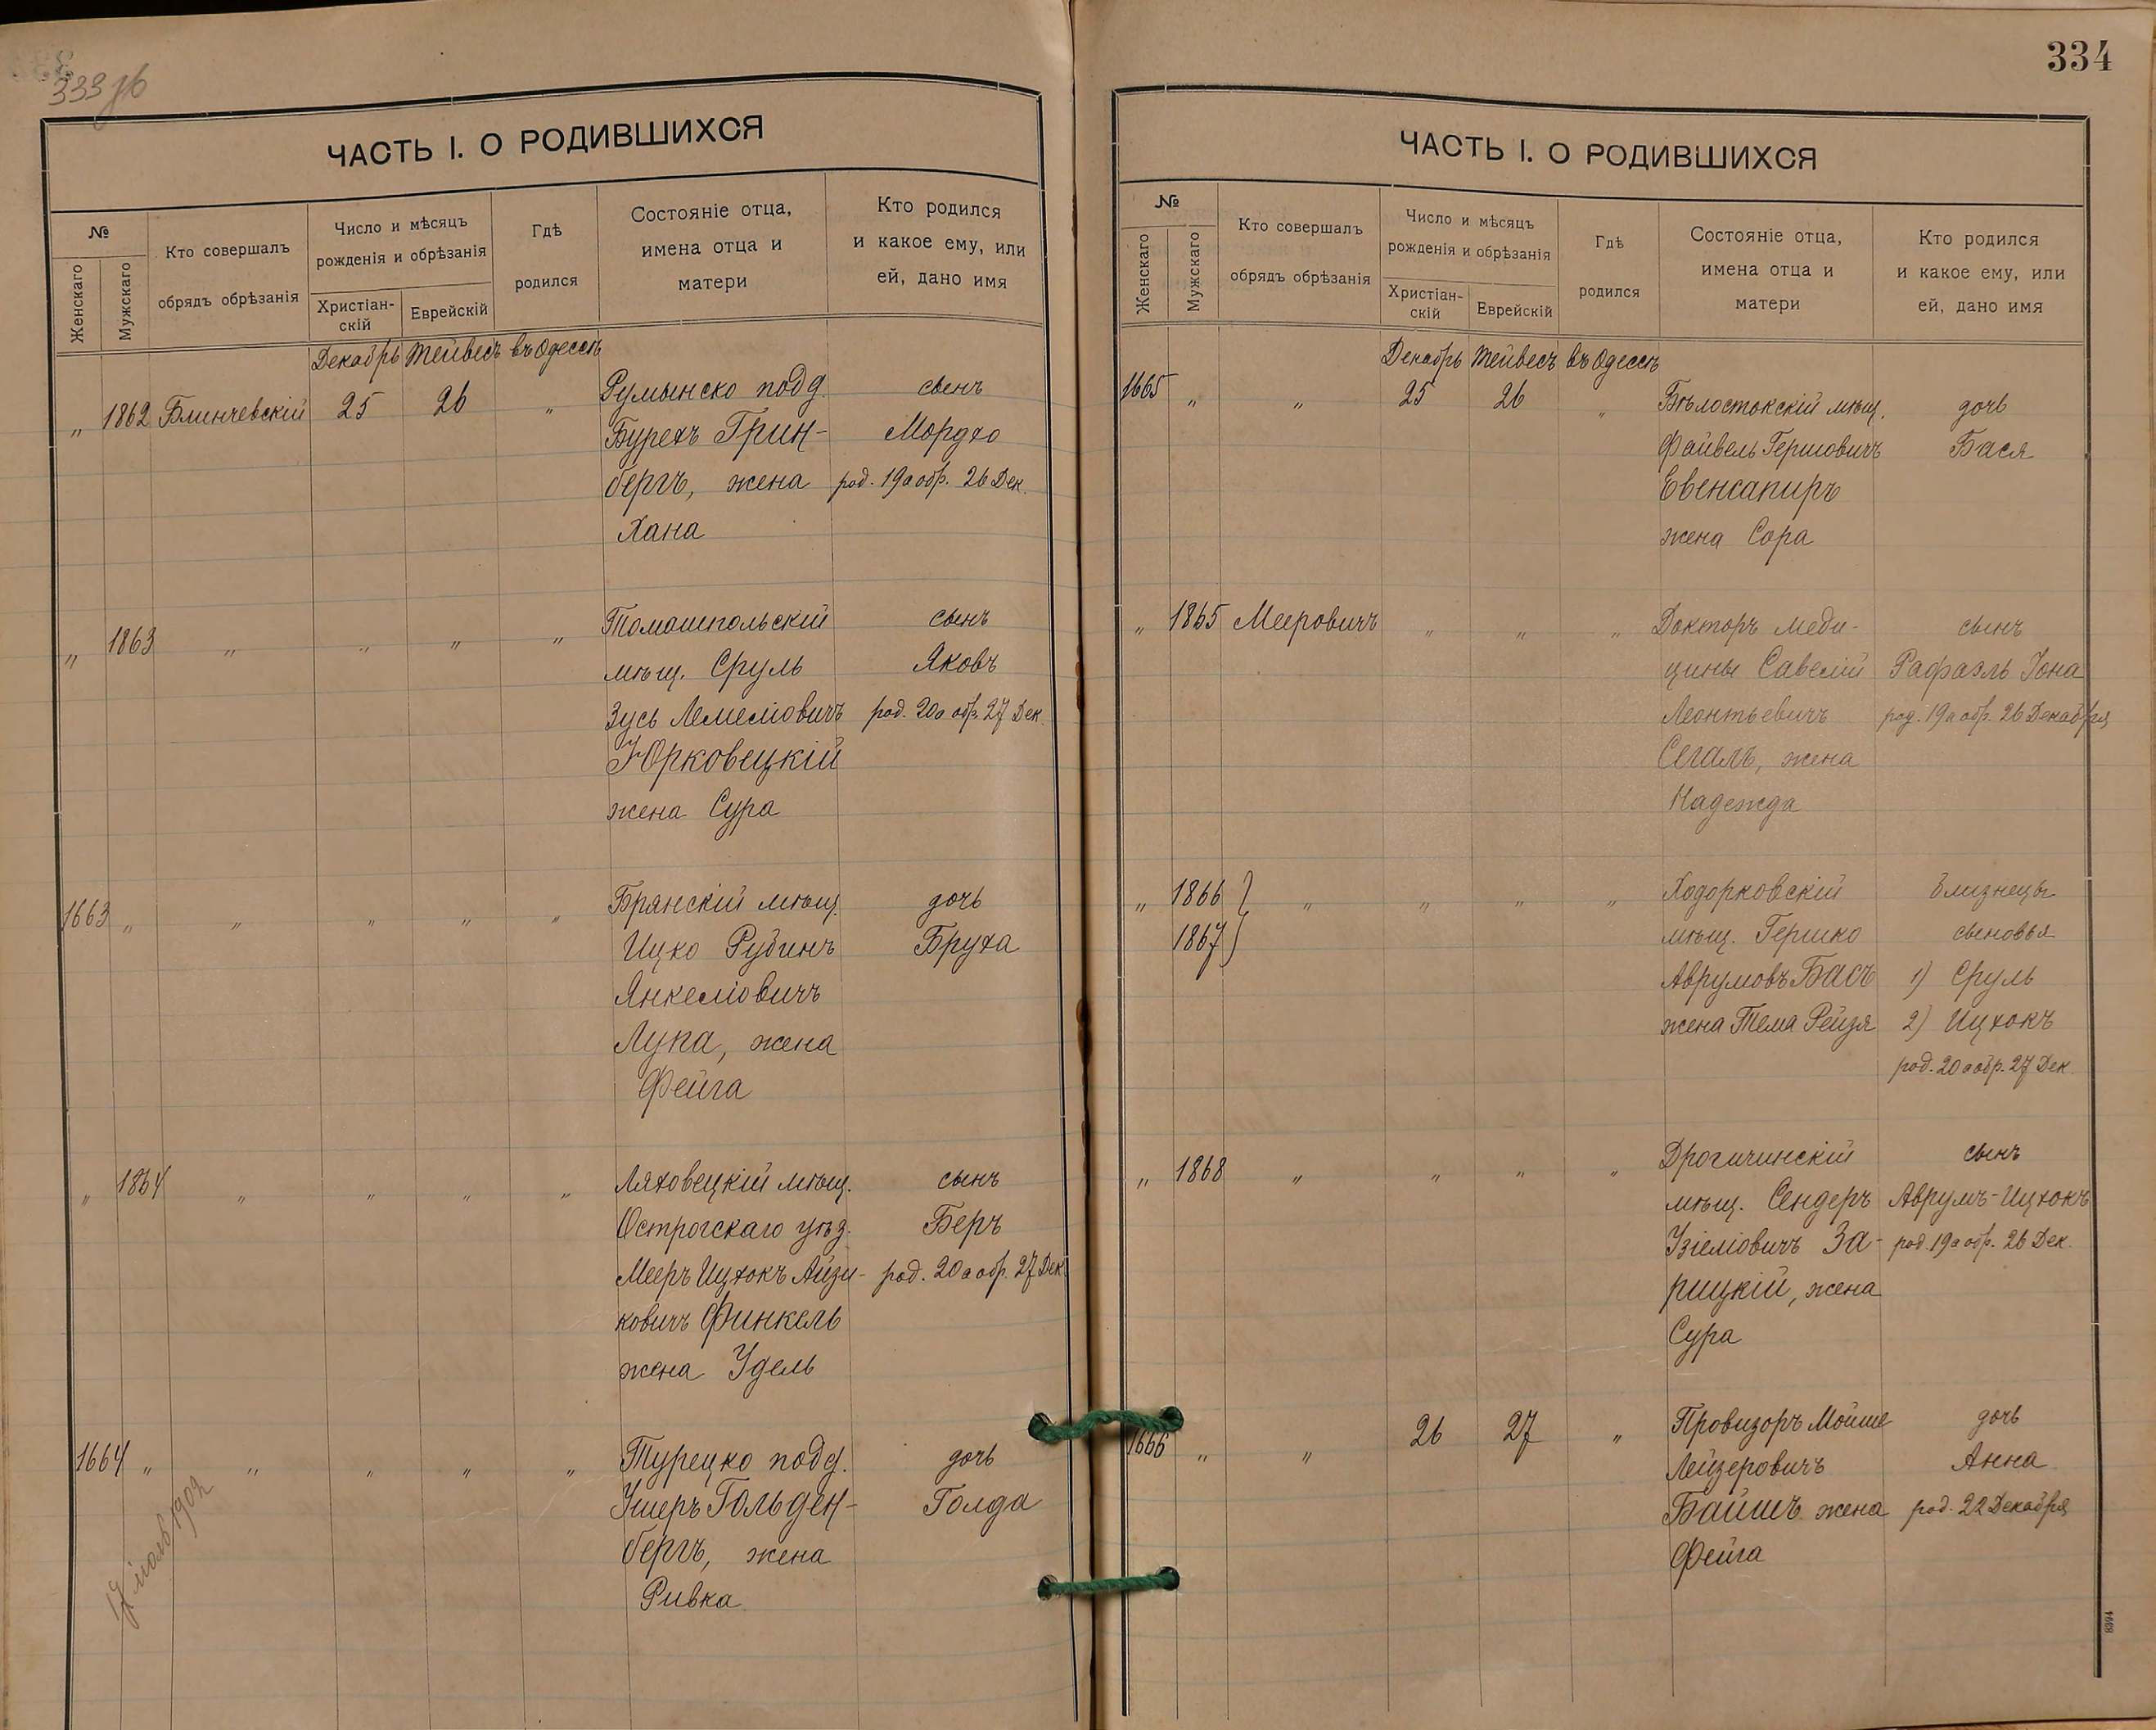 333 об
ЧАСТЬ I. О РОДИВШИХСЯ
№
Женскаго
Мужскаго
Кто совершалъ
обрядъ обрѣзанія
Число и мѣсяцъ
рожденія и обрѣзанія
Христіан-
скій
Еврейскій
Гдѣ
родился
Состояніе отца,
имена отца и
матери
Кто родился
и какое ему, или
ей, дано имя
Декабрь Тейвесъ въ Одессѣ
„ 1862 Блинчевскій 25 26 „ Румынско подд. сынъ
Бурехъ Грин- Мордхо
бергъ, жена род. 19 а обр. 26 Дек.
Хана
„ 1863 „ „ „ „ Томашпольскій сынъ
мѣщ. Сруль Яковъ
Зусь Лемеліовичъ род. 20 а обр. 27 Дек.
Юрковецкій
жена Сура
1663 „ „ „ „ „ Брянскій мѣщ. дочь
Ицко Рубинъ Бруха
Янкеліовичъ
Лупа, жена
Фейга
„ 1864 „ „ „ „ Ляховецкій мѣщ. сынъ
Острогскаго уѣз. Беръ
Мееръ Ицхокъ Айзи- род. 20 а обр. 27 Дек
ковичъ Финкель
жена Удель
1664 „ „ „ „ „ Турецко подд. дочь
Ушеръ Гольден- Голда
бергъ, жена
Ривка
334
ЧАСТЬ I. О РОДИВШИХСЯ
№
Женскаго
Мужскаго
Кто совершалъ
обрядъ обрѣзанія
Число и мѣсяцъ
рожденія и обрѣзанія
Христіан-
скій
Еврейскій
Гдѣ
родился
Состояніе отца,
имена отца и
матери
Кто родился
и какое ему, или
ей, дано имя
Декабрь Тейвесъ въ Одессѣ
1665 „ „ 25 26 „ Бѣлостокскій мѣщ. дочь
Файвель Гершовичъ Бася
Евенсапиръ
жена Сора
„ 1865 Мееровичъ „ „ „ Докторъ меди- сынъ
цины Савелій Рафаэль Іона
Леонтьевичъ род. 19 а обр. 26 Декабря
Сегалъ, жена
Надежда
„ 1866 } „ „ „ „ Ходорковскій близнецы
1867 } мѣщ. Гершко сыновья
Аврумовъ Басъ 1) Сруль
жена Тема Рейзя 2) Ицхокъ
род. 20 а обр. 27 Дек.
„ 1868 „ „ „ „ Дрогичинскій сынъ
мѣщ. Сендеръ Аврумъ-Ицхокъ
Узіеліовичъ За- род. 19 а обр. 26 Дек.
рицкій, жена
Сура
1666 „ „ 26 27 „ Провизоръ Мойше дочь
Лейзеровичъ Анна
Байшъ жена род. 22 Декабря
Фейга
8394